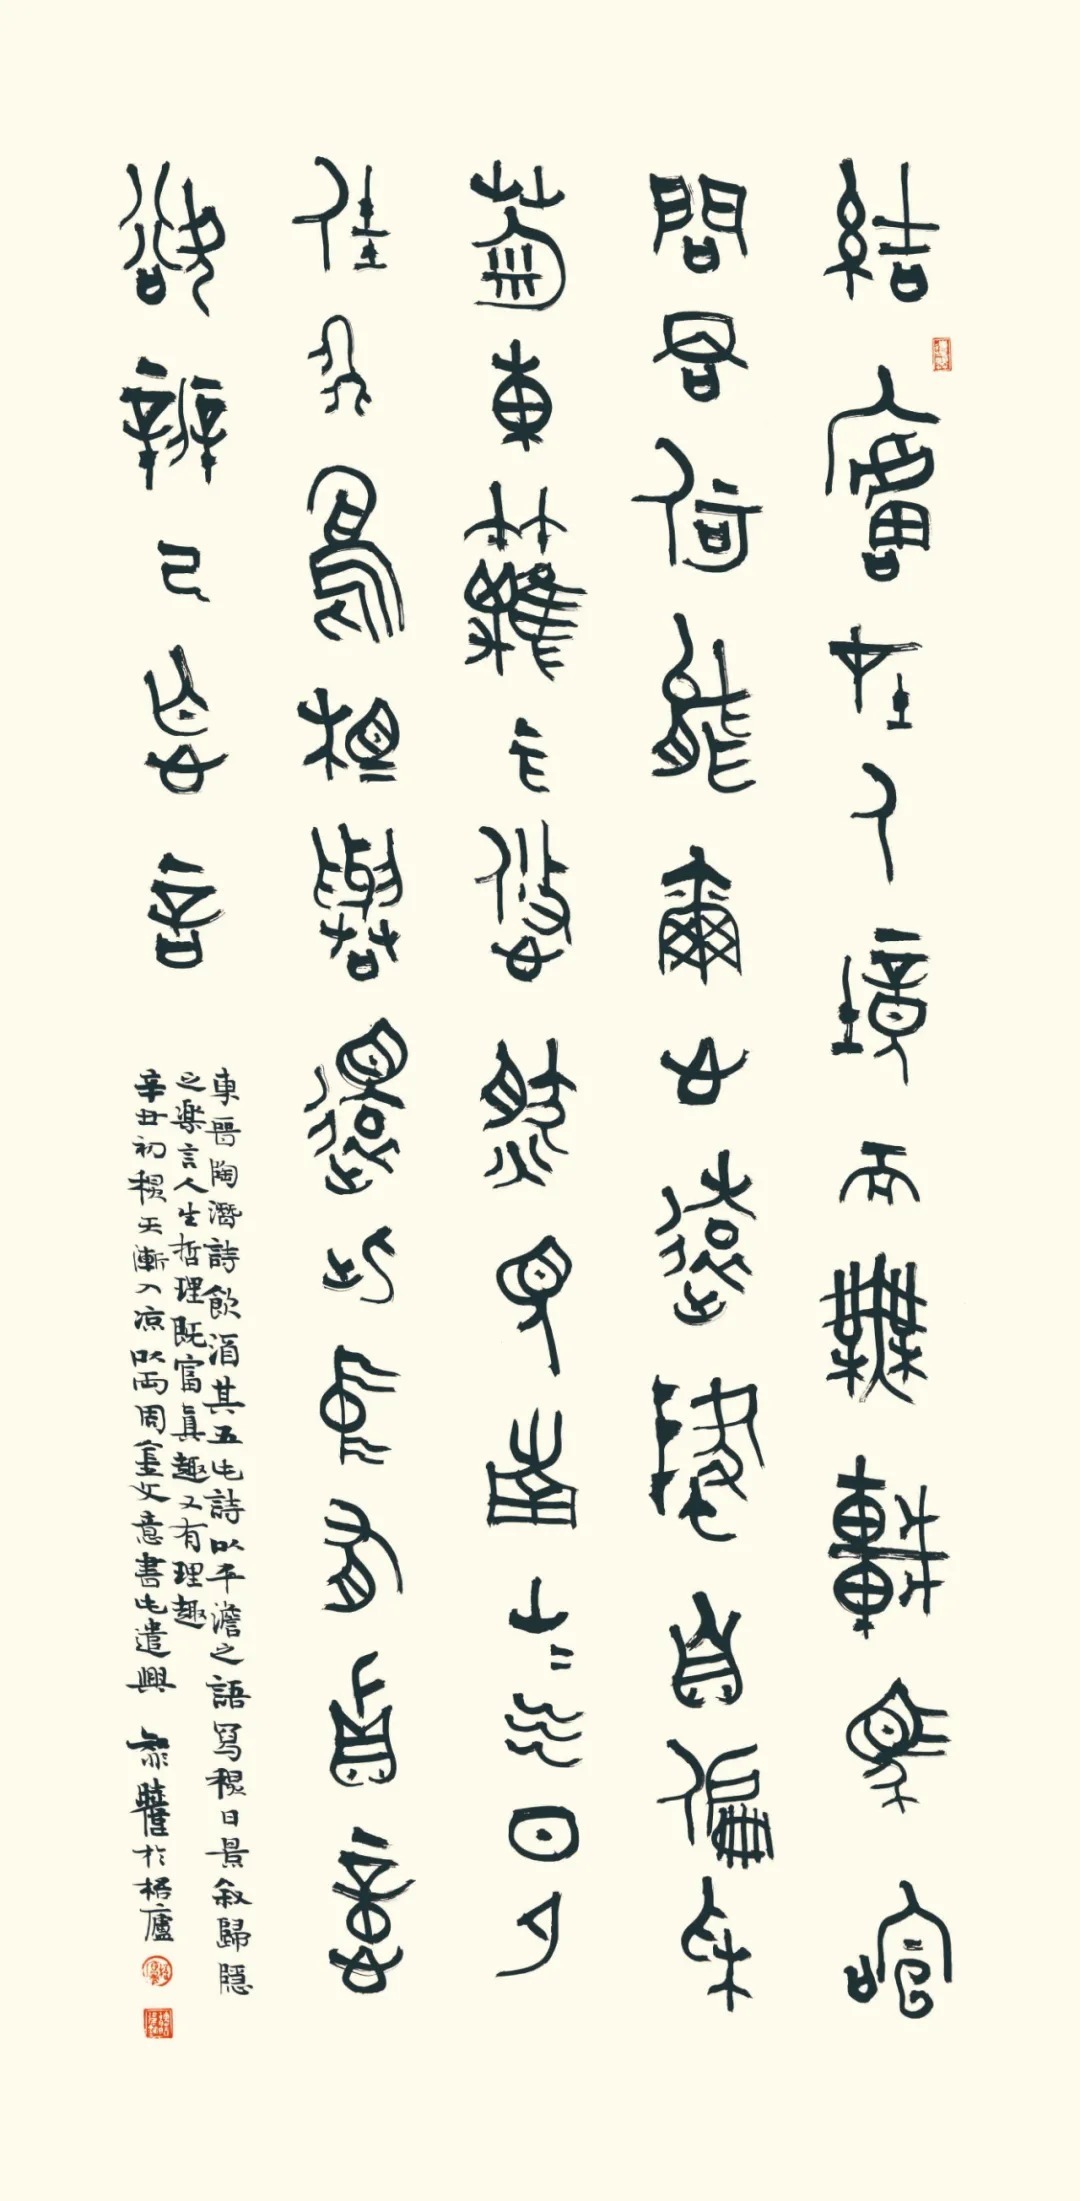 結廬在人境而無車馬喧
問君何能爾心遠地自偏采
菊東籬下悠然見南山〻氣日夕
佳飛鳥相與還此中有真意
欲辨已忘言
東晉陶潛詩飲酒其五也詩以平澹之語寫穐日景叙歸隱
之樂言人生哲理既富真趣又有理趣
辛丑初穐天漸入凉以兩周金文意書也遣興 於梧廬